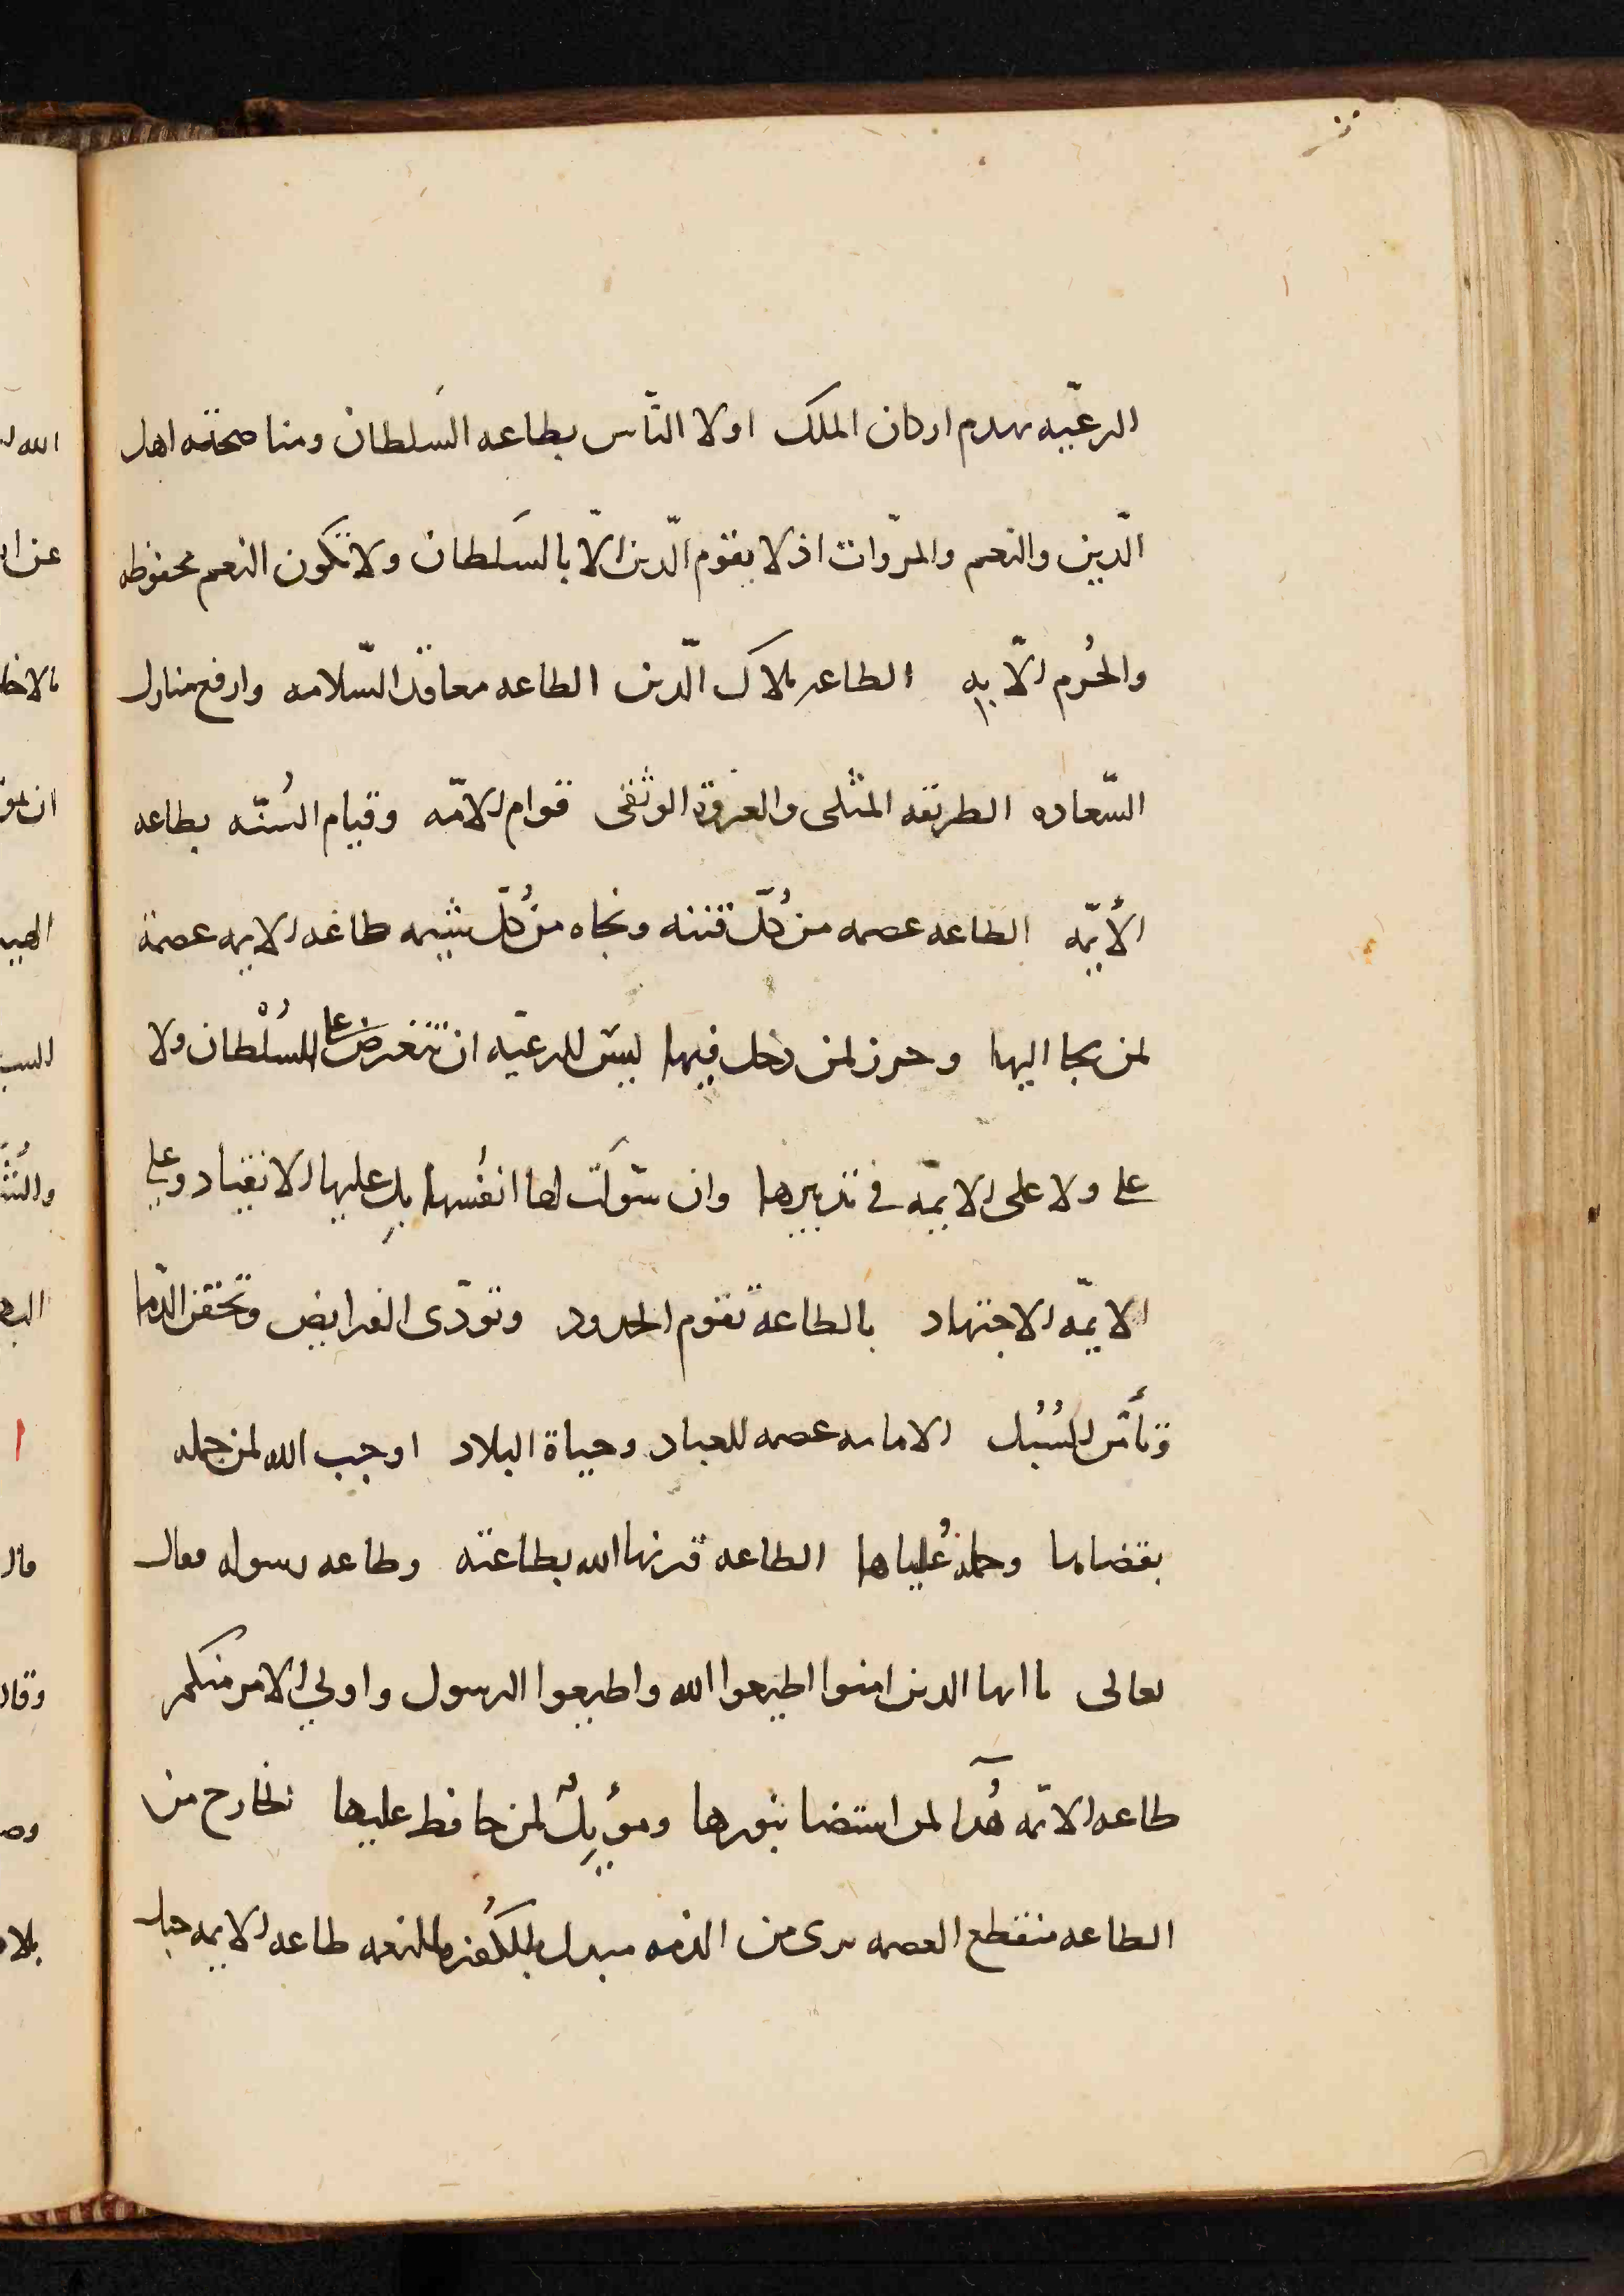 الرعيّه تهدم اركان الملك اولا النّاس بطاعه السَلطان ومناصحته اهل
الّدين والنعم والمرّوات اذ لا يقوم الّدين الّا بالسَلطان ولا تكون النعم محفوظه
والحُرم الّا به الطاعه ملاك الّدين الطاعه معاقد السّلامه وارفع منازل
السّعاده الطريقه المثلى والعروة الوثقى قوام الامّه وقيام السُنّه بطاعه
الأيمّه الطاعه عصمه من كُلّ فتنه ونجاه من كُلّ شبهه طاعه الايمه عصمة
لمن لجا اليها وحرز لمن دخل فيها ليس للرعيّه ان تتعرض على السُلْطان ولا
على ولا على الايمّه في تدبيرها وان سّولت لها انفُسها بل عليها الانقياد وعلى
الايمّه الاجتهاد بالطاعة تقوم الحدود وتودّى الفرايض وتحقن الدّما
وتأمن السُبُل الامامه عصمه للعباد وحياة البلاد اوجب الله لمن حمله
بقضاها وحمله عُلياها الطاعه قرنها الله بطاعته وطاعه رسوله فقال
تعالى ياايها الدين امنوا اطيعوا الله واطيعوا الرسول واولي الامر منكمر
طاعه الايمّه هُدا لمن استضا بنورها وموُيِلٌ لمن حافظ عليها الخارج من
الطاعه منقطع العصمه برى من الذمه مبدل بالكُفر النعمه طاعه الايمه حبل